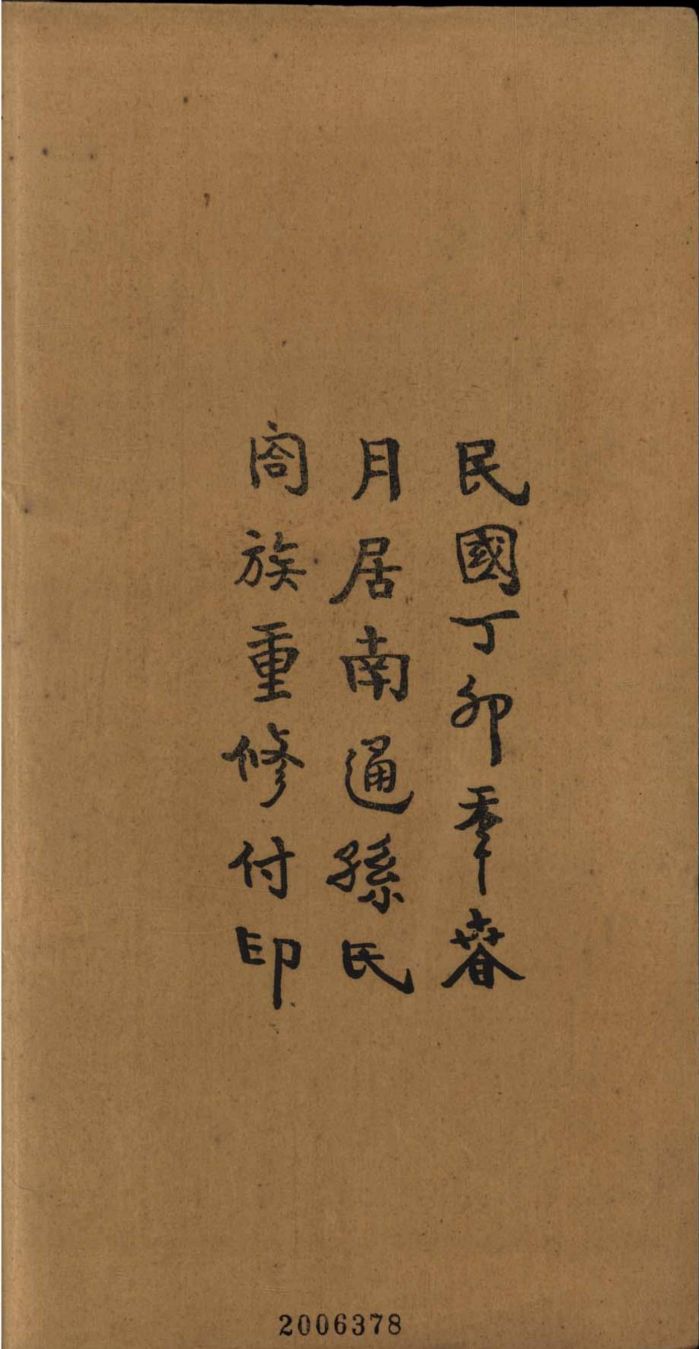 民國丁卯年春
月居南通孫氏
閤族重修付印
2006378